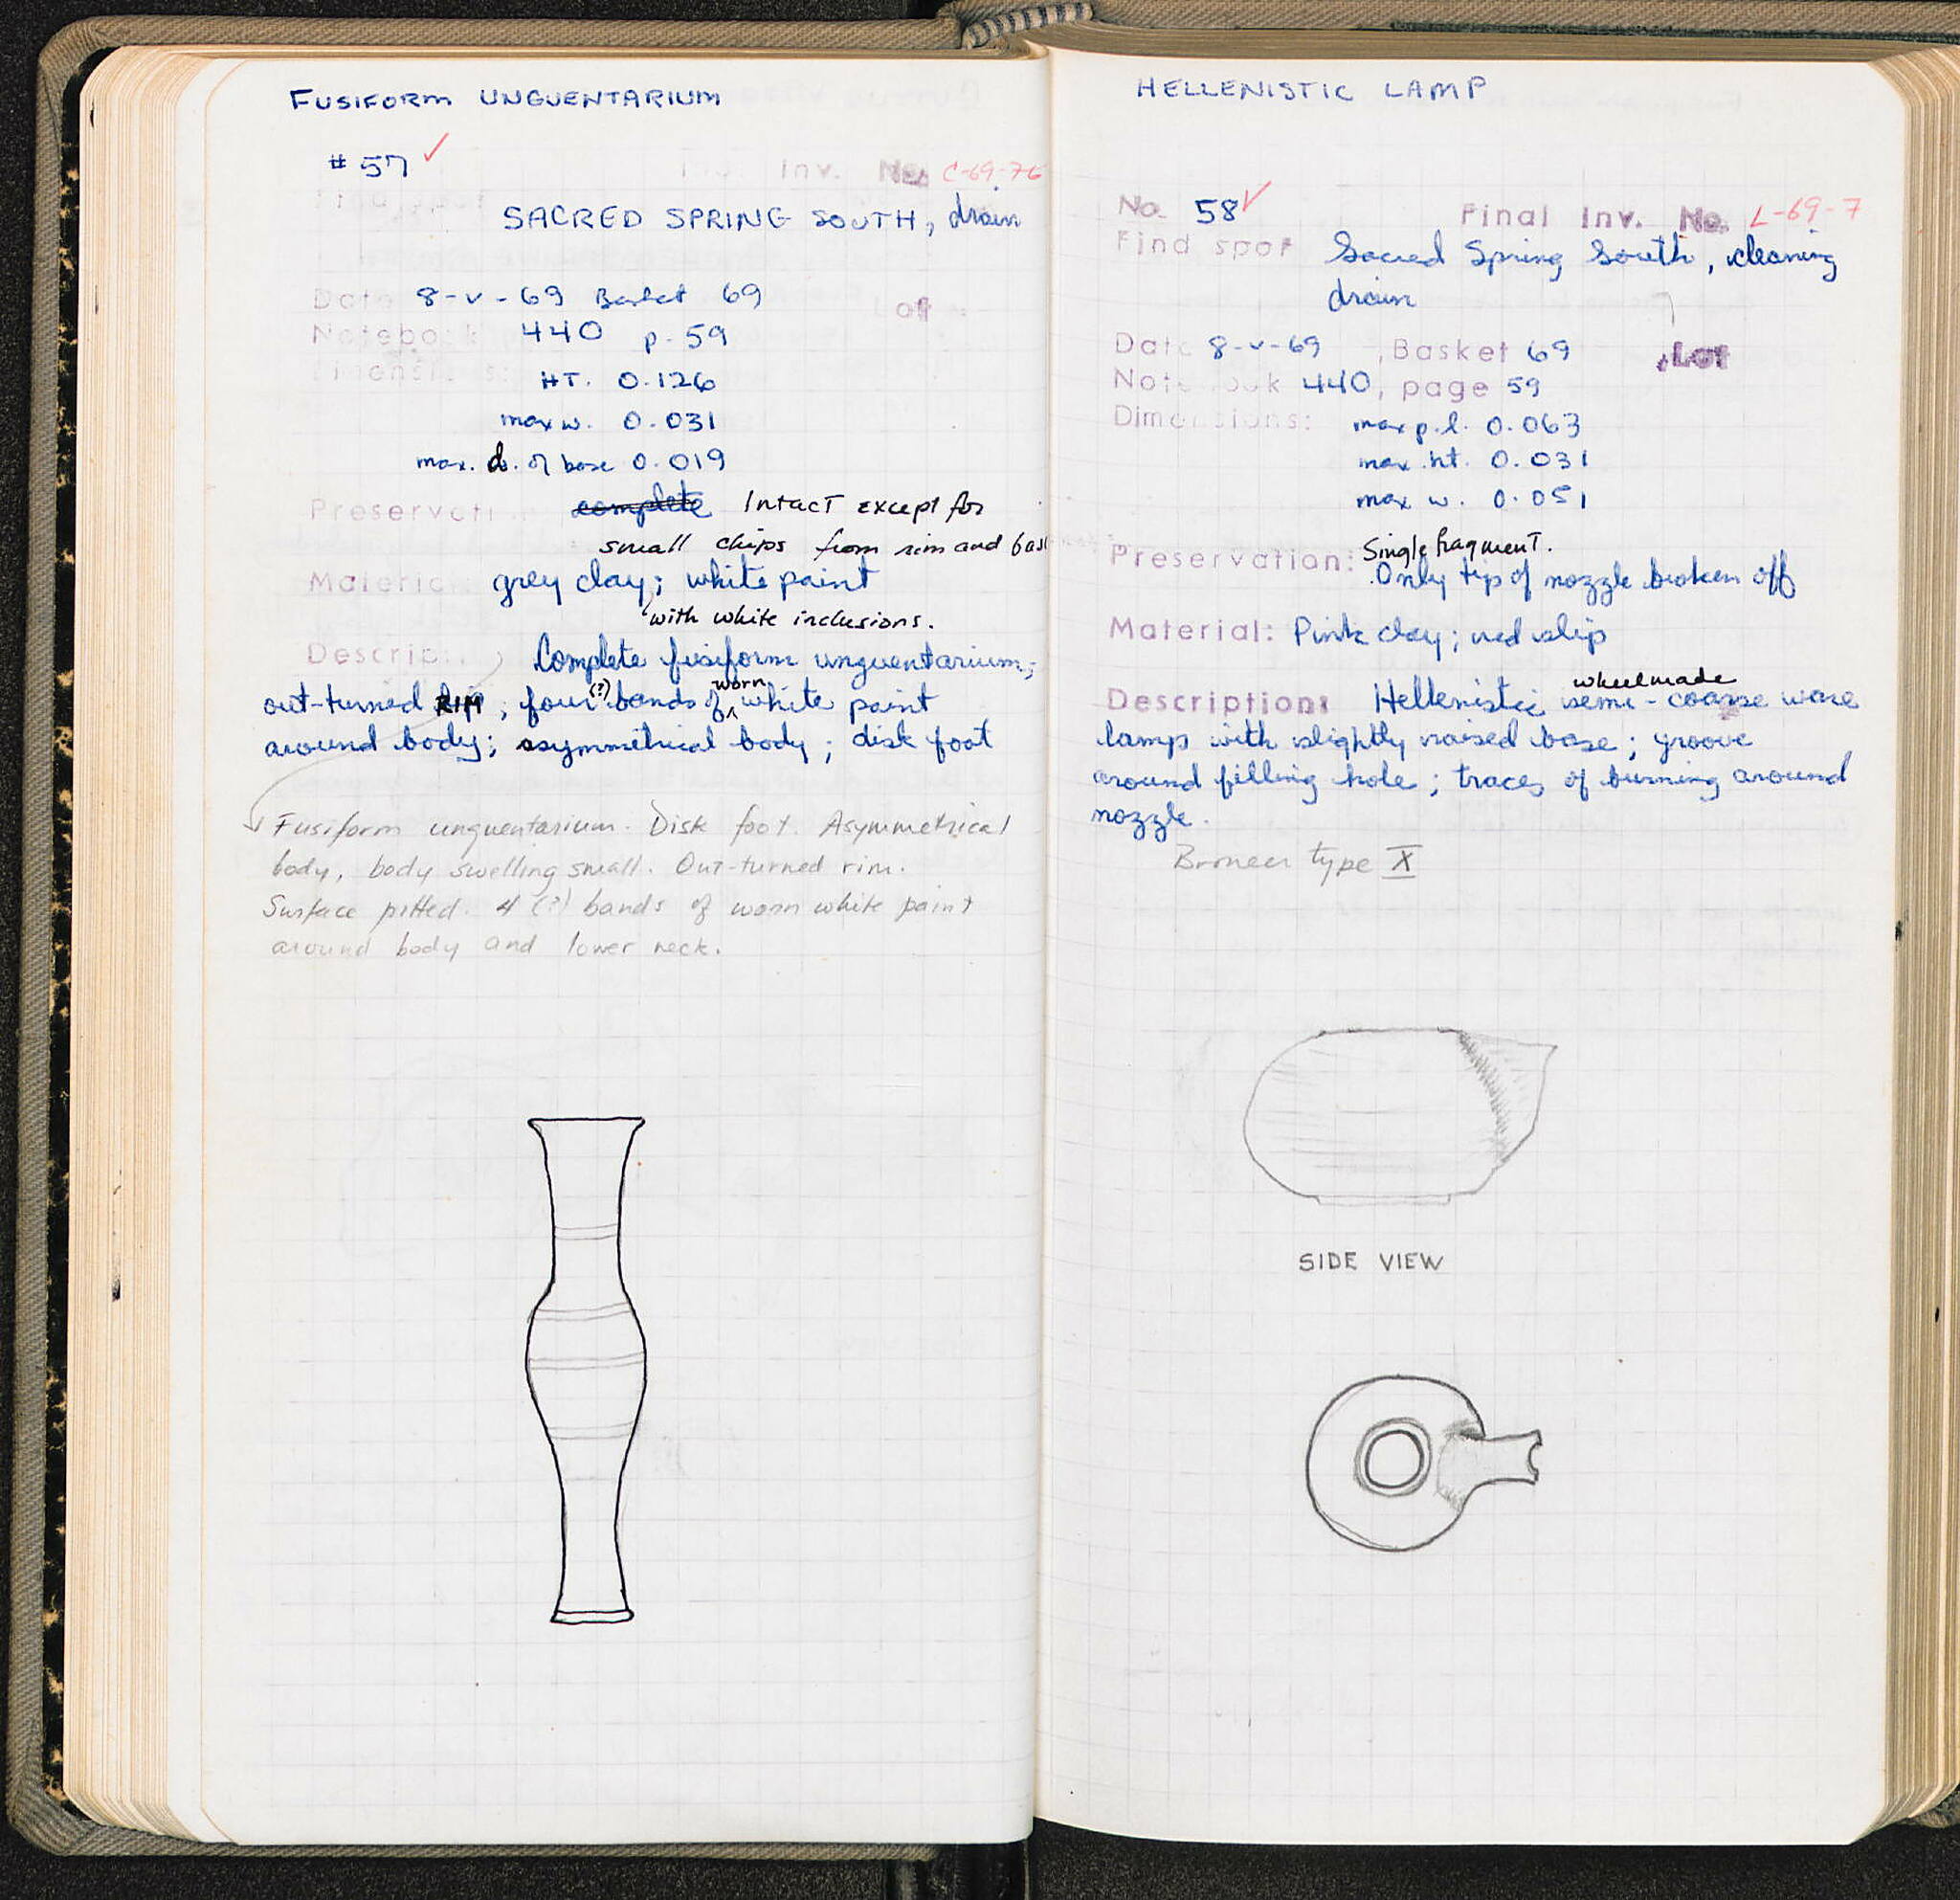 FUSIFORM UNGUENTARIUM
# 57 ✓
Inv. No. C-69-76
SACRED SPRING SOUTH, drain
Date 8-v-69 Basket 69 Lot
Notebook 440 p. 59
Dimensions: HT. 0.126
max w. 0.031
max. d. of base 0.019
Preservati complete Intact except for
small chips from rim and base
Materia grey clay; white paint
with white inclusions.
Descrip Complete fusiform unguentarium;
out-turned RIM; four (?) bands of worn white paint
around body; asymmetrical body; disk foot
Fusiform unguentarium. Disk foot. Asymmetrical
body, body swelling small. Out-turned rim.
Surface pitted. 4 (?) bands of worn white paint
around body and lower neck.
HELLENISTIC LAMP
No. 58 ✓ Final Inv. No. L-69-7
Find spot Sacred Spring South, cleaning
drain
Date 8-v-69, Basket 69, Lot
Notebook 440, page 59
Dimensions: max p.l. 0.063
max. ht. 0.031
max w. 0.051
Preservation: Single fragment.
Only tip of nozzle broken off
Material: Pink clay; red slip
wheelmade
Description: Hellenistic semi-coarse ware
lamp with slightly raised base; groove
around filling hole; traces of burning around
nozzle.
Broneer type X
SIDE VIEW